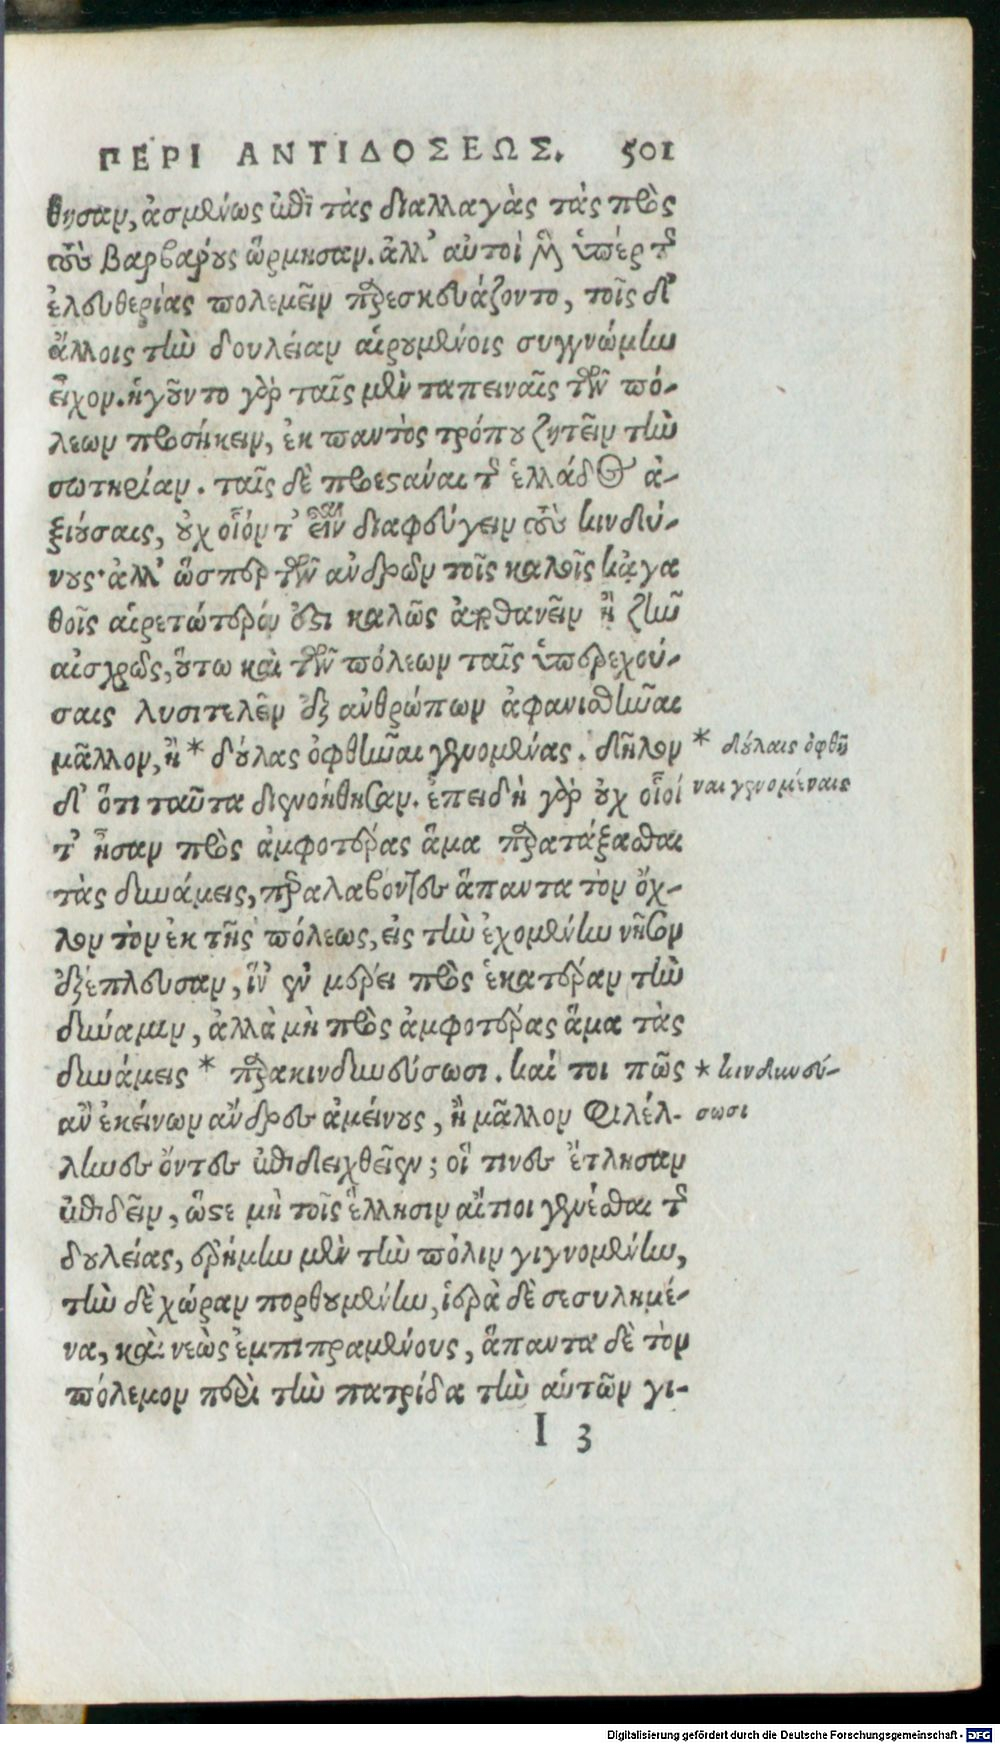 ΠΕΡΙ ΑΝΤΙΔΟΣΕΩΣ. 501
θησαν, ἀσμένως ἐπὶ τὰς διαλλαγὰς τὰς πρὸς
τοὺς βαρβάρους ὥρμησαν. ἀλλ' αὐτοὶ μὲν ὑπὲρ τῆς
ἐλευθερίας πολεμεῖν παρεσκευάζοντο, τοῖς δ'
ἄλλοις τὴν δουλείαν αἱρουμένοις συγγνώμην
εἶχον. ἡγοῦντο γὰρ ταῖς μὲν ταπειναῖς τῶν πό-
λεων προσήκειν, ἐκ παντὸς τρόπου ζητεῖν τὴν
σωτηρίαν. ταῖς δὲ προεστάναι τῆς ἑλλάδος ἀ-
ξιούσαις, οὐχ οἷόν τ' εἶναι διαφεύγειν τοὺς κινδύ-
νους· ἀλλ' ὥσπερ τῶν ἀνδρῶν τοῖς καλοῖς κἀγα
θοῖς αἱρετώτερόν ἐστι καλῶς ἀποθανεῖν ἢ ζῆν
αἰσχρῶς, οὕτω καὶ τῶν πόλεων ταῖς ὑπερεχού-
σαις λυσιτελεῖν ἐξ ἀνθρώπων ἀφανισθῆναι
μᾶλλον, ἢ * δούλας ὀφθῆναι γενομένας. δῆλον
δ' ὅτι ταῦτα διενοήθησαν. ἐπειδὴ γὰρ οὐχ οἷοί
τ' ἦσαν πρὸς ἀμφοτέρας ἅμα παρατάξασθαι
τὰς δυνάμεις, παραλαβόντες ἅπαντα τὸν ὄχ-
λον τὸν ἐκ τῆς πόλεως, εἰς τὴν ἐχομένην νῆσον
ἐξέπλευσαν, ἵν' ἐν μέρει πρὸς ἑκατέραν τὴν
δύναμιν, ἀλλὰ μὴ πρὸς ἀμφοτέρας ἅμα τὰς
δυνάμεις * παρακινδυνεύσωσι. καί τοι πῶς
ἂν ἐκείνων ἄνδρες ἀμείνους, ἢ μᾶλλον φιλέλ-
ληνες ὄντες ἐπιδειχθεῖεν; οἵ τινες ἔτλησαν
ἐπιδεῖν, ὥστε μὴ τοῖς ἕλλησιν αἴτιοι γενέσθαι τῆς
δουλείας, ἐρήμην μὲν τὴν πόλιν γιγνομένην,
τὴν δὲ χώραν πορθουμένην, ἱερὰ δὲ σεσυλημέ-
να, καὶ νεὼς ἐμπιπραμένους, ἅπαντα δὲ τὸν
πόλεμον περὶ τὴν πατρίδα τὴν αὑτῶν γι-
I 3
* δούλαις ὀφθῆ
ναι γενομέναις
* κινδυνεύ-
σωσι
Digitalisierung gefördert durch die Deutsche Forschungsgemeinschaft - DFG